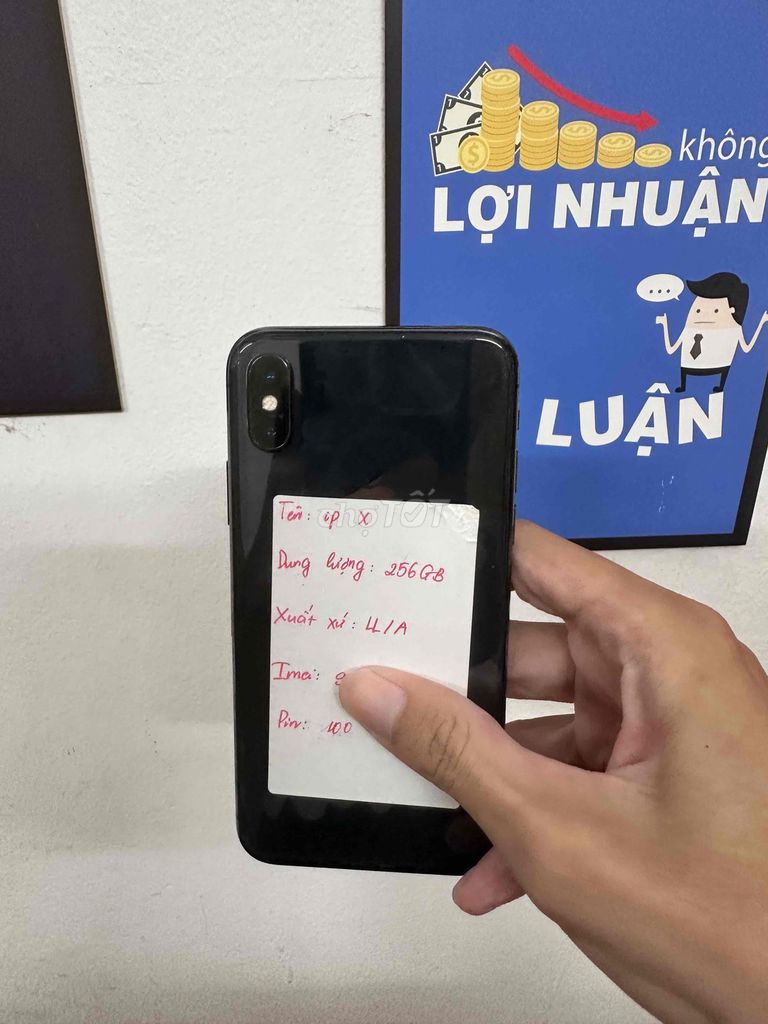 không
LỢI NHUẬN
...
LUẬN
Tên: ip X
chợTỐT
Dung lượng: 256GB
Xuất xứ: LL/A
Imei:
Pin: 100